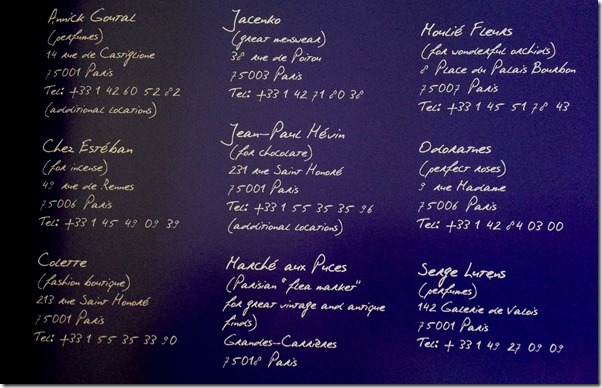 Annick Goutal
(perfumes)
14 rue de Castiglione
75001 Paris
Tel: +33 1 42 60 52 82
(additional locations)
Chez Estéban
(for incense)
49 rue de Rennes
75006 Paris
Tel: +33 1 45 49 09 39
Colette
(fashion boutique)
213 rue Saint Honoré
75001 Paris
Tel: +33 1 55 35 33 90
Jacenko
(great menswear)
38 rue de Poitou
75003 Paris
Tel: +33 1 42 71 80 38
Jean-Paul Hévin
(for chocolate)
231 rue Saint Honoré
75001 Paris
Tel: +33 1 55 35 35 96
(additional locations)
Marché aux Puces
(Parisian "flea market"
for great vintage and antique
finds)
Grandes-Carrières
75018 Paris
Moulié Fleurs
(for wonderful orchids)
8 Place du Palais Bourbon
75007 Paris
Tel: +33 1 45 51 78 43
Odorantes
(perfect roses)
9 rue Madame
75006 Paris
Tel: +33 1 42 84 03 00
Serge Lutens
(perfumes)
142 Galerie de Valois
75001 Paris
Tel: +33 1 49 27 09 09